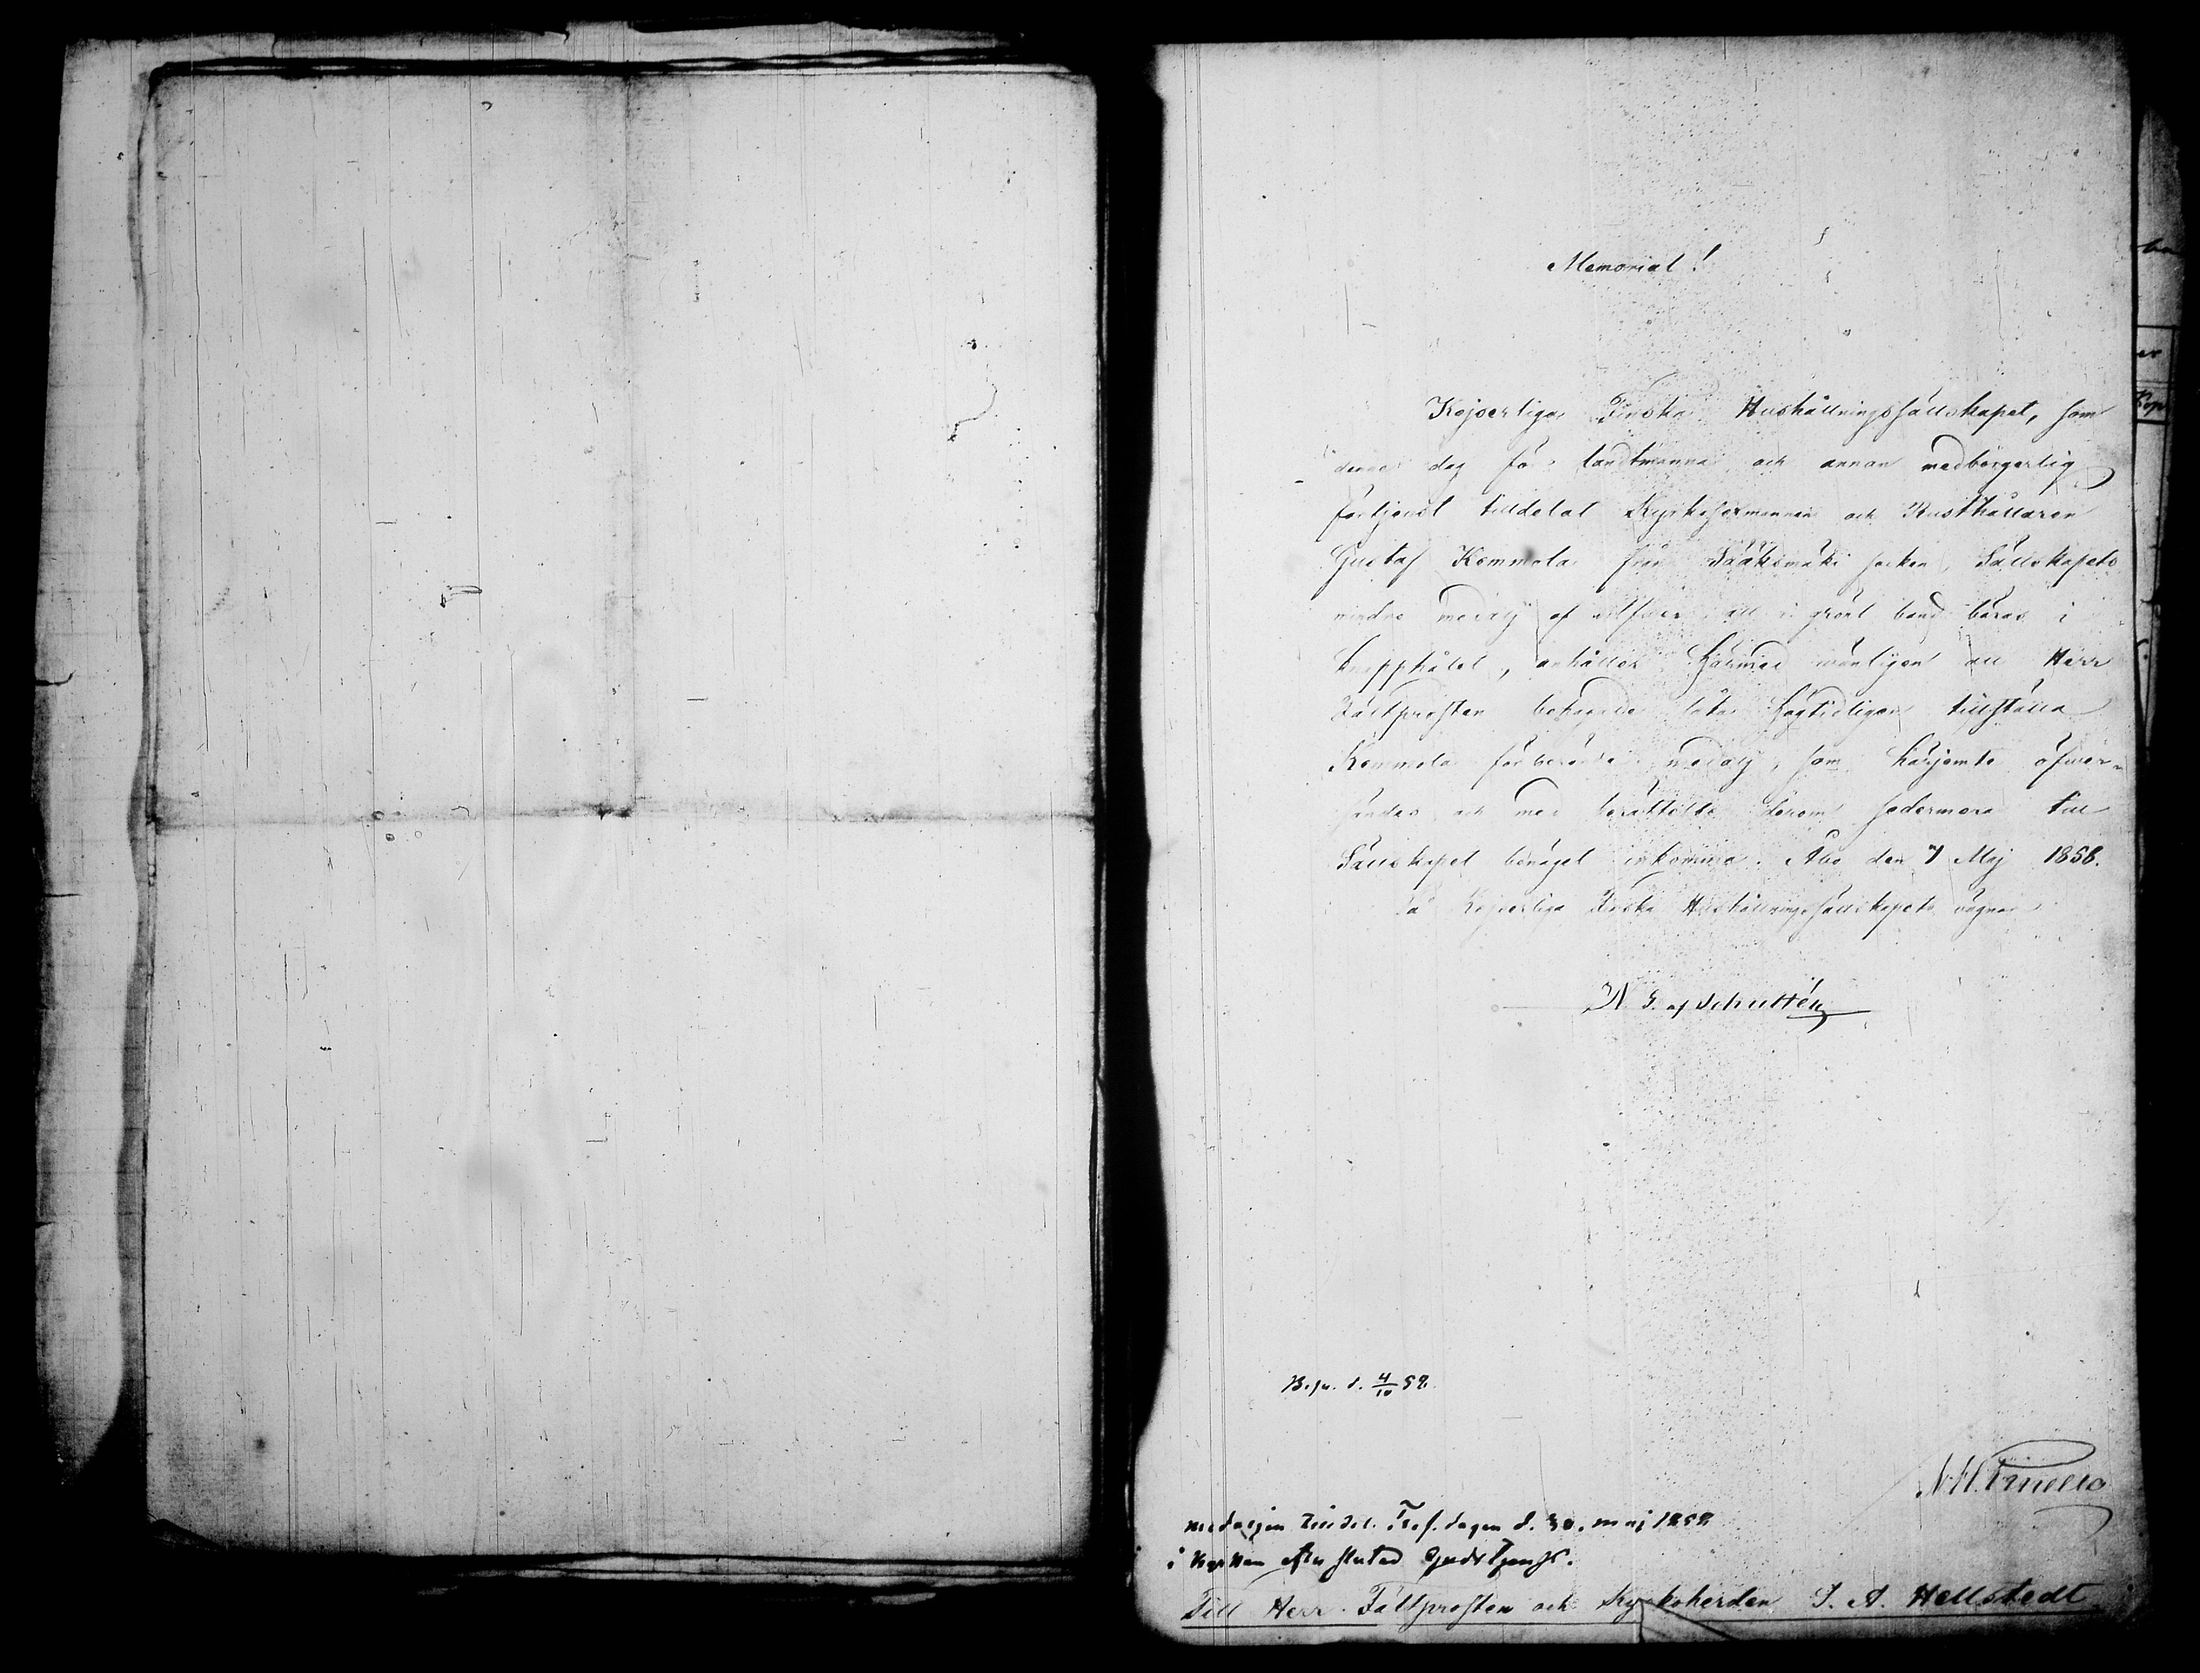 Memorial!
Kejserliga Finska Hushållningssällskapet, som
denna dag för landtmanna och annan medborgerlig
förtjenst tilldelat Kyrkosexmannen och Rusthållaren
Gustaf Kommola från Sääksmäki socken, Sällskapets
mindre medalj af silfver, att i grönt band bäras i
knapphålet, anhåller härmed vänligen att Herr
Fältprosten behagade låta högtidligen tillställa
Kommola förberörde medalj, som härjemte öfver-
sändes, och med berättelse derom sedermera till
Sällskapet benäget inkomma. Åbo den 7 Maj 1858.
På Kejserliga Finska Hushållningssällskapets vägnar
af Schultén
Besv. d. 4/10 58.
medaljen tilldel. Tref. dagen d. 30. maj 1858
i kyrkan efter slutad Gudstjenst.
Till Herr Fältprosten och Kyrkoherden J. A. Hellstedt